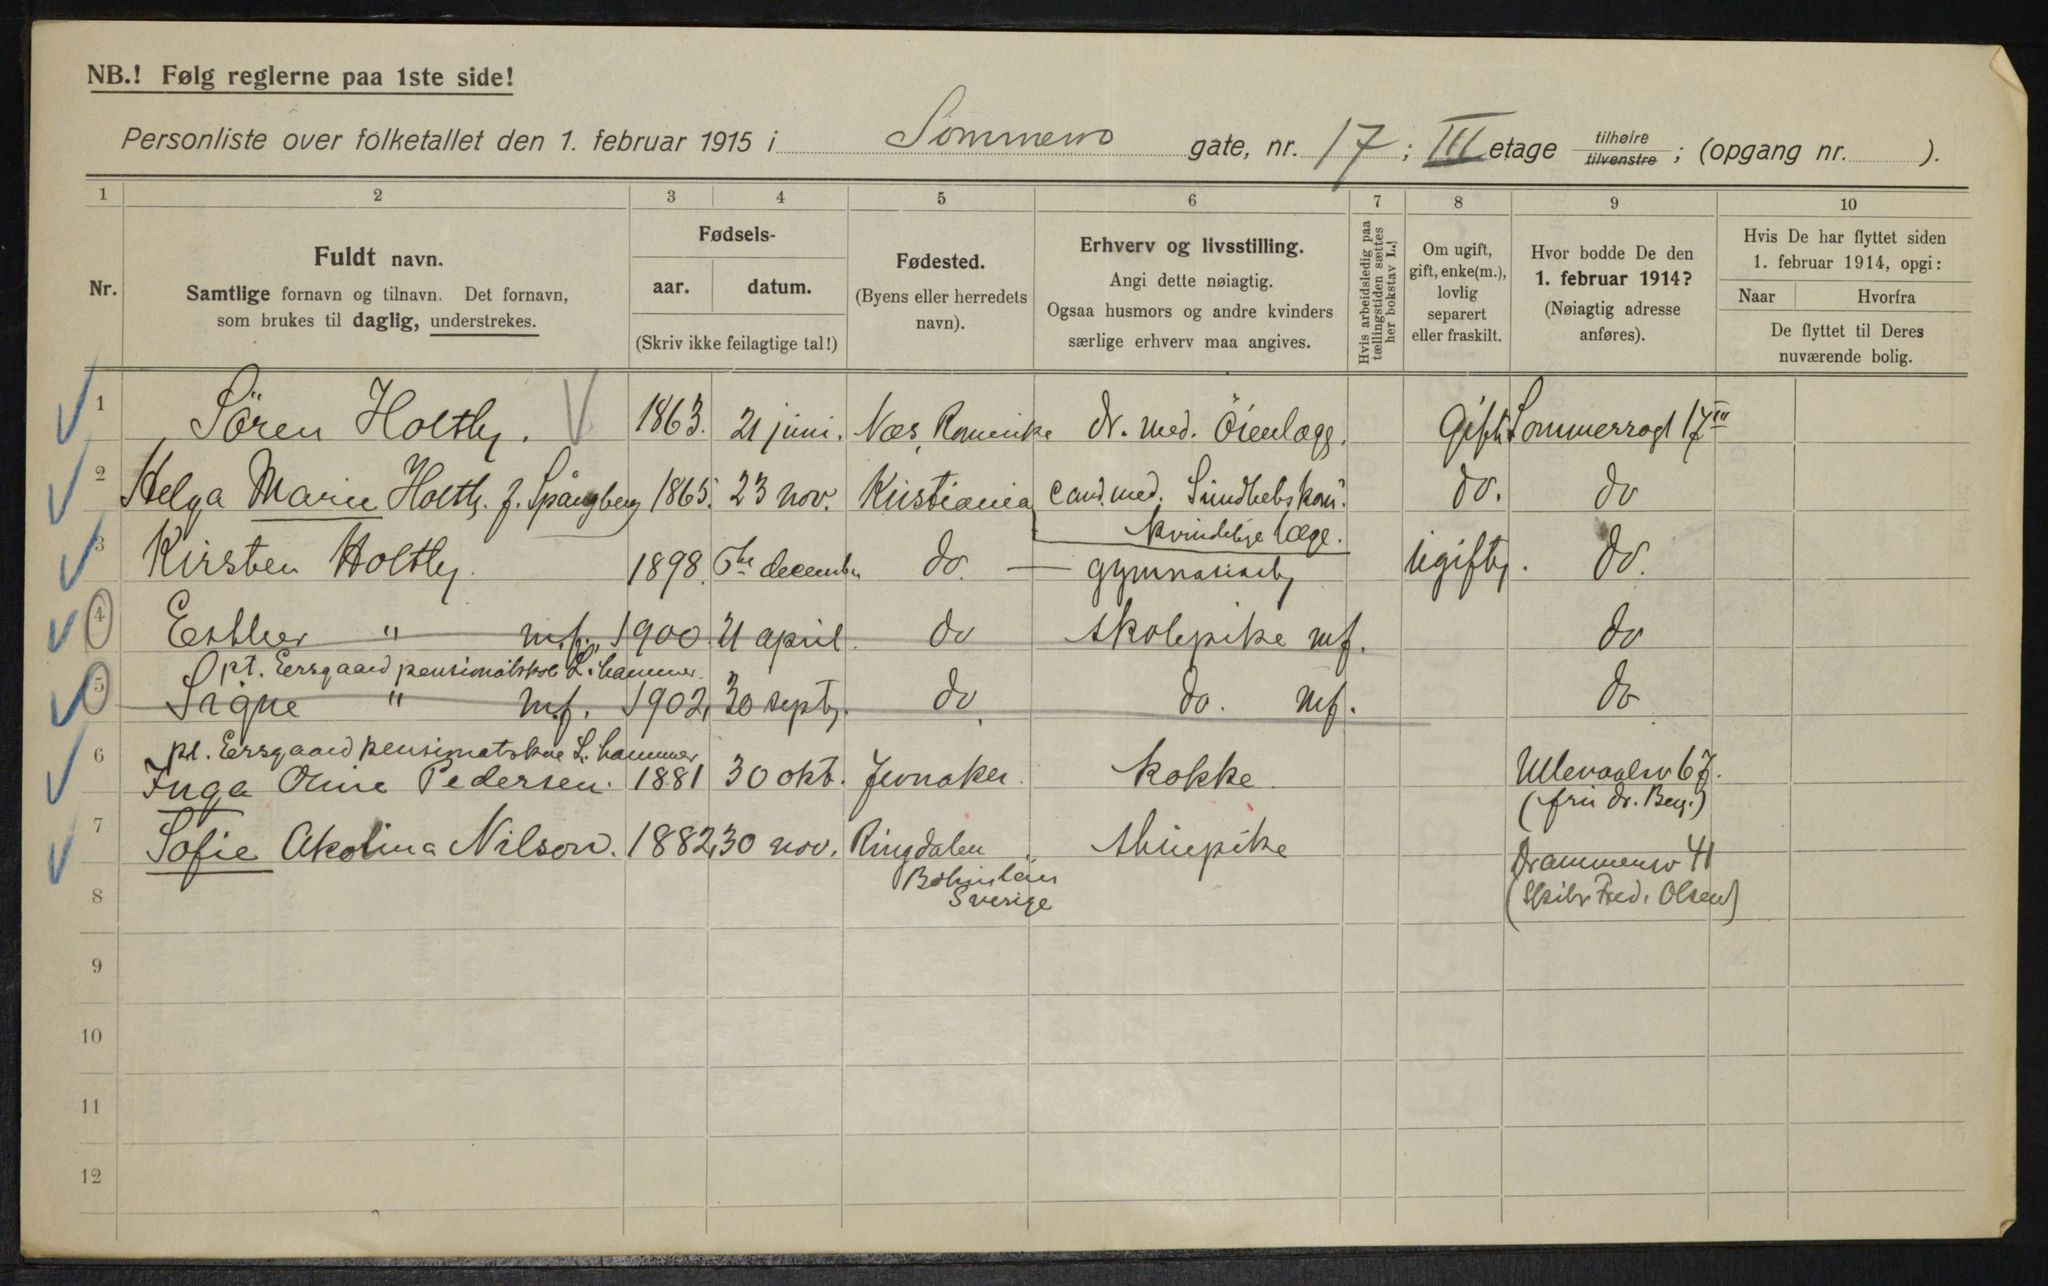 NB.! Følg reglerne paa 1ste side!
Personliste over folketallet den 1. februar 1915 i Sommerro gate, nr. 17; III etage tilhøire tilvenstre; (opgang nr. ).
1 2 3 4 5 6 7 8 9 10
Nr.
Fuldt navn.
Samtlige fornavn og tilnavn. Det fornavn,
som brukes til daglig, understrekes.
Fødsels-
aar. datum.
(Skriv ikke feilagtige tal!)
Fødested.
(Byens eller herredets
navn).
Erhverv og livsstilling.
Angi dette nøiagtig.
Ogsaa husmors og andre kvinders
særlige erhverv maa angives.
Hvis arbeidsledig paa
tællingstiden sættes
her bokstav L.!
Om ugift,
gift, enke(m.),
lovlig
separert
eller fraskilt.
Hvor bodde De den
1. februar 1914?
(Nøiagtig adresse
anføres).
Hvis De har flyttet siden
1. februar 1914, opgi:
Naar Hvorfra
De flyttet til Deres
nuværende bolig.
1 Sören Holtby. 1863. 21 juni. Næs, Romerike dr. med. Öienlæge. Gift Sommerrogt 17 III
2 Helga Marie Holtby. f. Spångberg 1865. 23 nov. Kristiania cand. med. Sundhetskom. do. do
kvindelige læge.
3 Kirsten Holtby. 1898. 6te december do. — gymnasiast ugift. do.
4 Esther " m.f., 1900. 21 april. do skolepike mf. do
pt. Eersgaard pensionatskole L.hammer.
5 Signe " m.f. 1902, 30 septb. do do. mf. do
pt. Eersgaard pensionatskole L.hammer
6 Inga Oline Pedersen. 1881 30 okt. Jevnaker. kokke. Ullevaalsv 67.
(fru dr. Bey.)
7 Sofie Akolina Nilson. 1882, 30 nov. Ringdalen stuepike Drammensv 41
Bohuslän
Sverige
(Skibr Fred. Olsen)
8
9
10
11
12